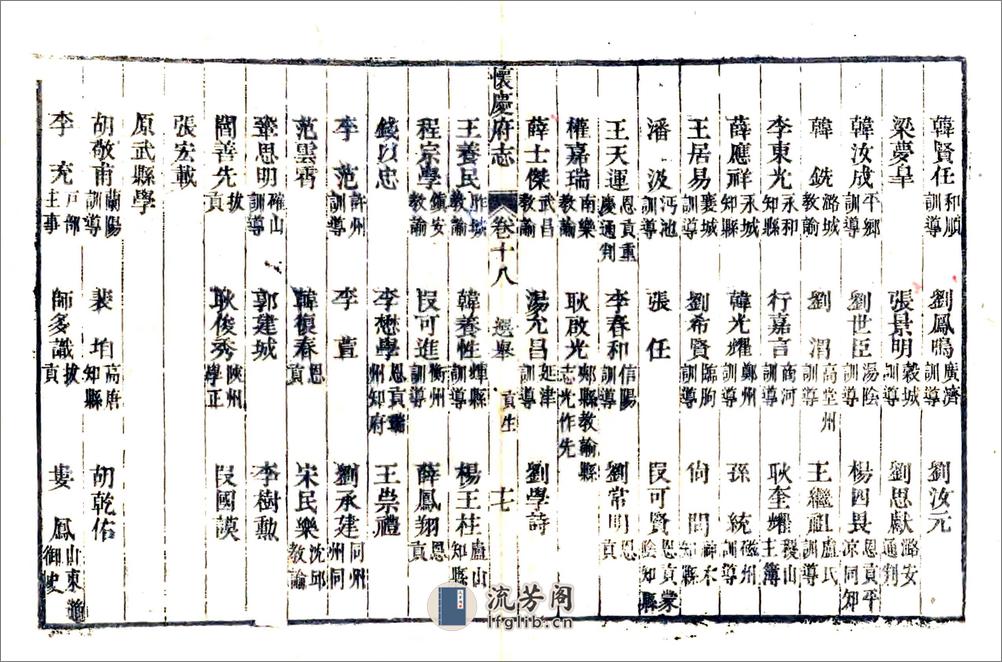 韓賢任和順訓導 劉鳳鳴廣濟訓導 劉汝元
梁夢皐 張景明穀城訓導 劉思獻潞安通判
韓汝成平鄉訓導 劉世臣湯陰訓導 楊四畏恩貢平涼同知
韓銑潞城教諭 劉渭高堂州訓導 王繼祖盧氏訓導
李東光永和知縣 行嘉言商河訓導 耿奎耀稷山主簿
薛應祥永城知縣 韓光耀鄭州訓導 孫統磁州訓導
王居易襄城訓導 劉希賢臨朐訓導 尙問
潘汲沔池訓導 張任 段可賢恩貢蒙陰知縣
王天運恩貢重慶通判 李春和信陽訓導 劉常明恩貢
權嘉瑞南樂教諭 耿啟光郟縣教諭縣志光作先
薛士傑武昌教諭 湯允昌延津訓導 劉學詩
懷慶府志 卷十八 選舉 貢生 十七
王養民胙城教諭 韓養性輝縣訓導 楊王柱盧山知縣
程宗學鎮安教諭 段可進衡州訓導 薛鳳翔恩貢
錢以忠 李懋學恩貢州知府 王崇禮
李范許州訓導 李萱 劉承建同州州同
范雲霄 韓復春恩貢 宋民樂沈邱教諭
思明確山訓導 郭建城 李樹勲
閻善先拔貢 耿俊秀陝州學正 段國謨
張宏載
原武縣學
胡敬甫蘭陽訓導 裴珀高唐知縣 胡乾佑
李充戸部主事 師多識拔貢 婁鳳山東道御史
流芳阁
lfglib.cn